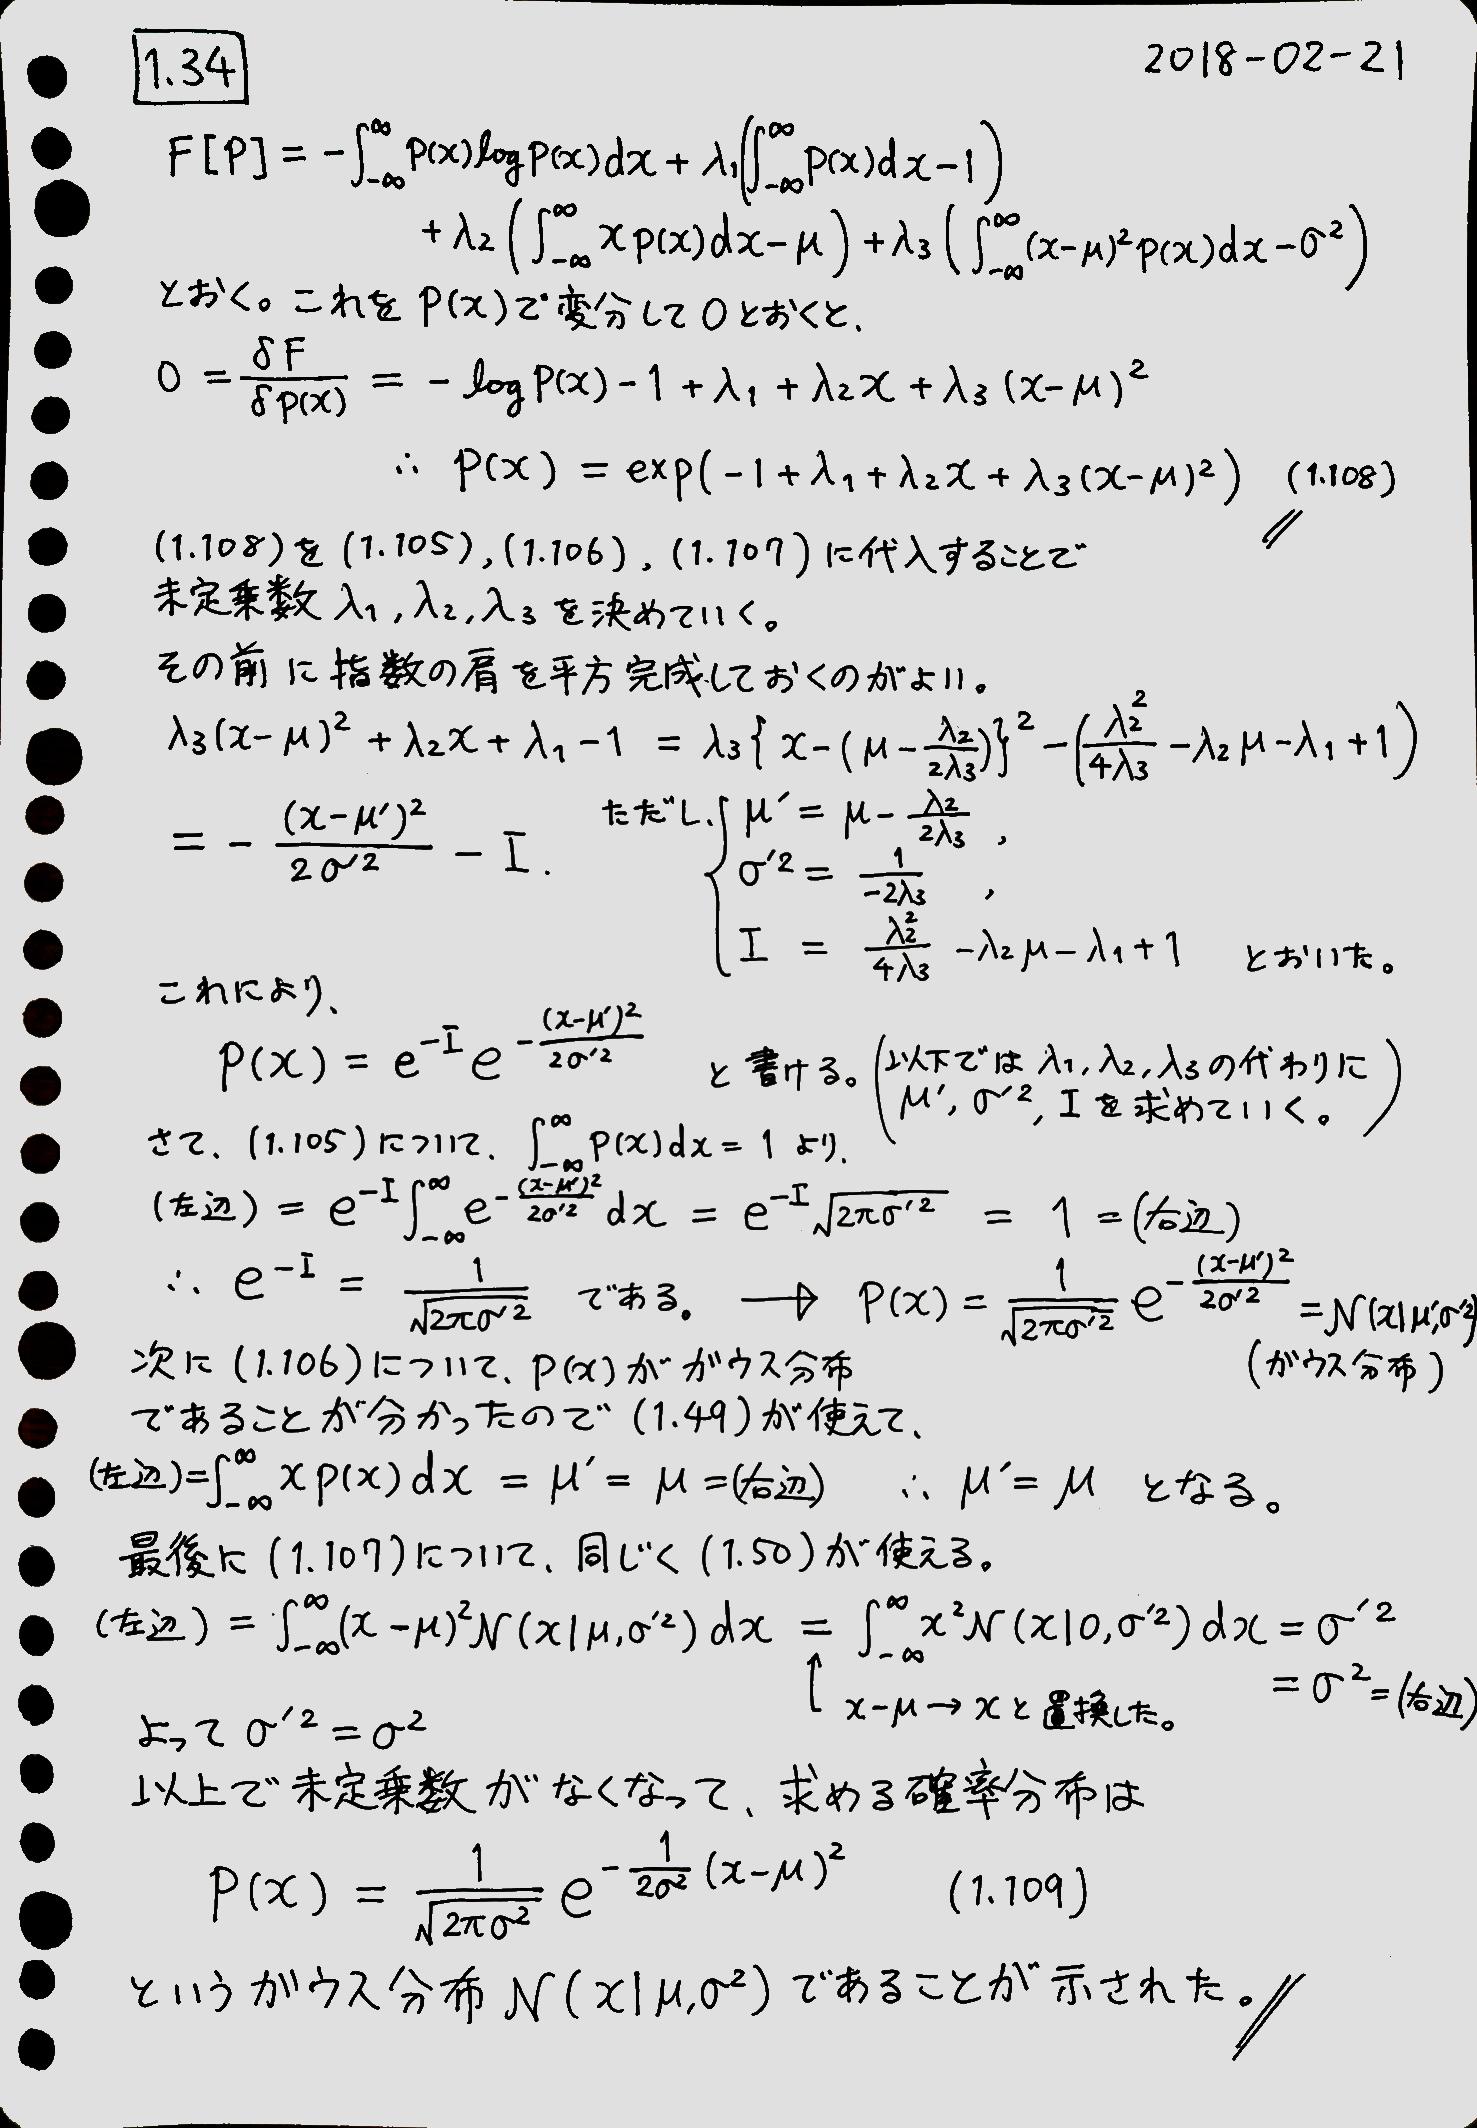 1.34
2018-02-21
F[P] = -∫_{-∞}^{∞} p(x) log p(x) dx + λ₁(∫_{-∞}^{∞} p(x) dx - 1)
+ λ₂(∫_{-∞}^{∞} x p(x) dx - μ) + λ₃(∫_{-∞}^{∞} (x-μ)² p(x) dx - σ²)
とおく。これを p(x)で変分して 0 とおくと、
0 = δF/δp(x) = - log p(x) - 1 + λ₁ + λ₂x + λ₃(x-μ)²
∴ p(x) = exp(-1 + λ₁ + λ₂x + λ₃(x-μ)²) (1.108)
(1.108)を(1.105),(1.106),(1.107)に代入することで
未定乗数 λ₁, λ₂, λ₃ を決めていく。
その前に指数の肩を平方完成しておくのがよい。
λ₃(x-μ)² + λ₂x + λ₁ - 1 = λ₃{x-(μ-λ₂/2λ₃)}² - (λ₂²/4λ₃ - λ₂μ - λ₁ + 1)
= - (x-μ')²/2σ'² - I. ただし、{ μ' = μ - λ₂/2λ₃ ,
σ'² = 1/-2λ₃ ,
I = λ₂²/4λ₃ - λ₂μ - λ₁ + 1 とおいた。
これにより、
p(x) = e^{-I} e^{-(x-μ')²/2σ'²} と書ける。(以下では λ₁, λ₂, λ₃の代わりに
μ', σ'², I を求めていく。)
さて、(1.105)について、∫_{-∞}^{∞} p(x) dx = 1 より、
(左辺) = e^{-I} ∫_{-∞}^{∞} e^{-(x-μ')²/2σ'²} dx = e^{-I} √(2πσ'²) = 1 = (右辺)
∴ e^{-I} = 1/√(2πσ'²) である。 → p(x) = 1/√(2πσ'²) e^{-(x-μ')²/2σ'²} = N(x|μ',σ'²)
(ガウス分布)
次に(1.106)について、p(x)がガウス分布
であることが分かったので(1.49)が使えて、
(左辺)=∫_{-∞}^{∞} x p(x) dx = μ' = μ =(右辺) ∴ μ' = μ となる。
最後に(1.107)について、同じく(1.50)が使える。
(左辺) = ∫_{-∞}^{∞} (x-μ)² N(x|μ,σ'²) dx = ∫_{-∞}^{∞} x² N(x|0,σ'²) dx = σ'²
= σ² = (右辺)
↑ x-μ → x と置換した。
よって σ'² = σ²
以上で未定乗数がなくなって、求める確率分布は
p(x) = 1/√(2πσ²) e^{-1/2σ² (x-μ)²} (1.109)
というガウス分布 N(x|μ,σ²)であることが示された。